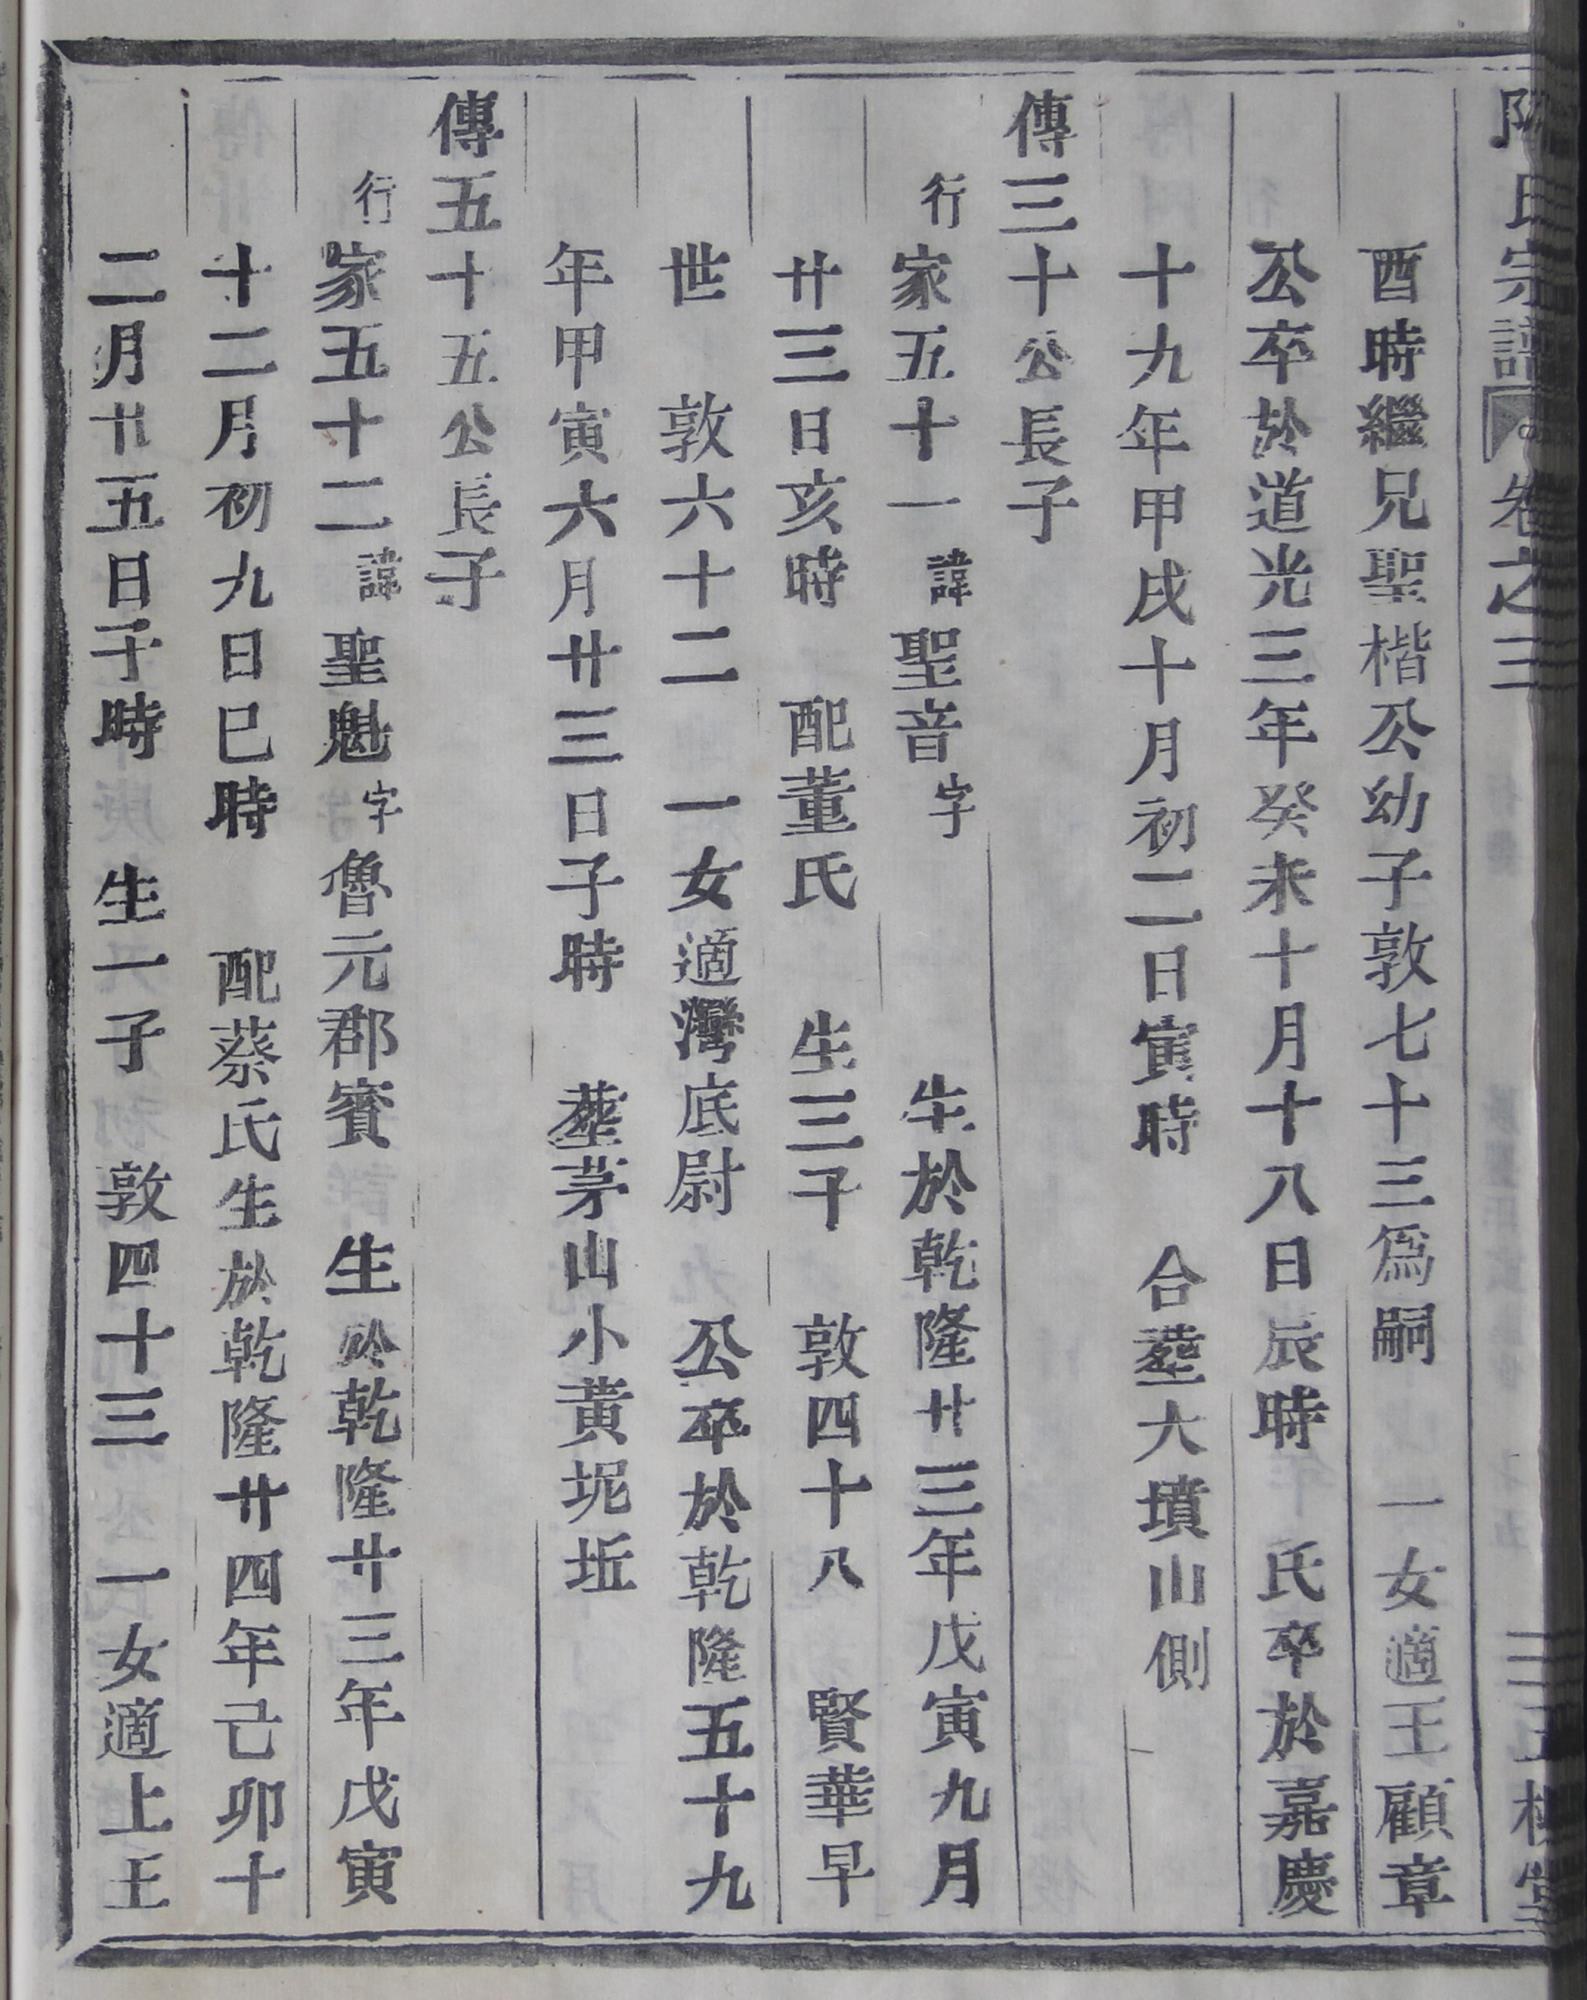 氏宗譜 卷之三
酉時繼兄聖楷公幼子敦七十三爲嗣 一女適王顧章
公卒於道光三年癸未十月十八日辰時 氏卒於嘉慶
十九年甲戌十月初二日寅時 合塟大墳山側
傳三十公長子
行家五十一諱聖音字 生於乾隆廿三年戊寅九月
廿三日亥時 配董氏 生三子 敦四十八 賢華早
世 敦六十二 一女適灣底尉 公卒於乾隆五十九
年甲寅六月廿三日子時 塟茅山小黃坭坵
傳五十五公長子
行家五十二諱聖魁字魯元郡賓 生於乾隆廿三年戊寅
十二月初九日巳時 配蔡氏生於乾隆廿四年己卯十
二月廿五日子時 生一子 敦四十三 一女適上王